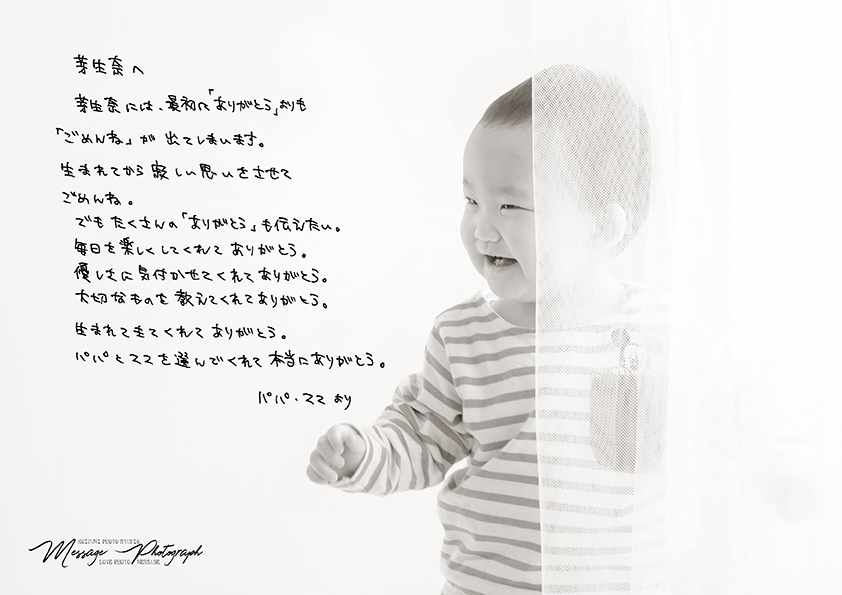 芽生奈へ
芽生奈には、最初に「ありがとう」よりも
「ごめんね」が出てしまいます。
生まれてから寂しい思いをさせて
ごめんね。
でもたくさんの「ありがとう」も伝えたい。
毎日を楽しくしてくれてありがとう。
優しさに気付かせてくれてありがとう。
大切なものを教えてくれてありがとう。
生まれてきてくれてありがとう。
パパとママを選んでくれて本当にありがとう。
パパ・ママより
KOIZUMI PHOTO STUDIO
Message Photograph
LOVE PHOTO MESSAGE